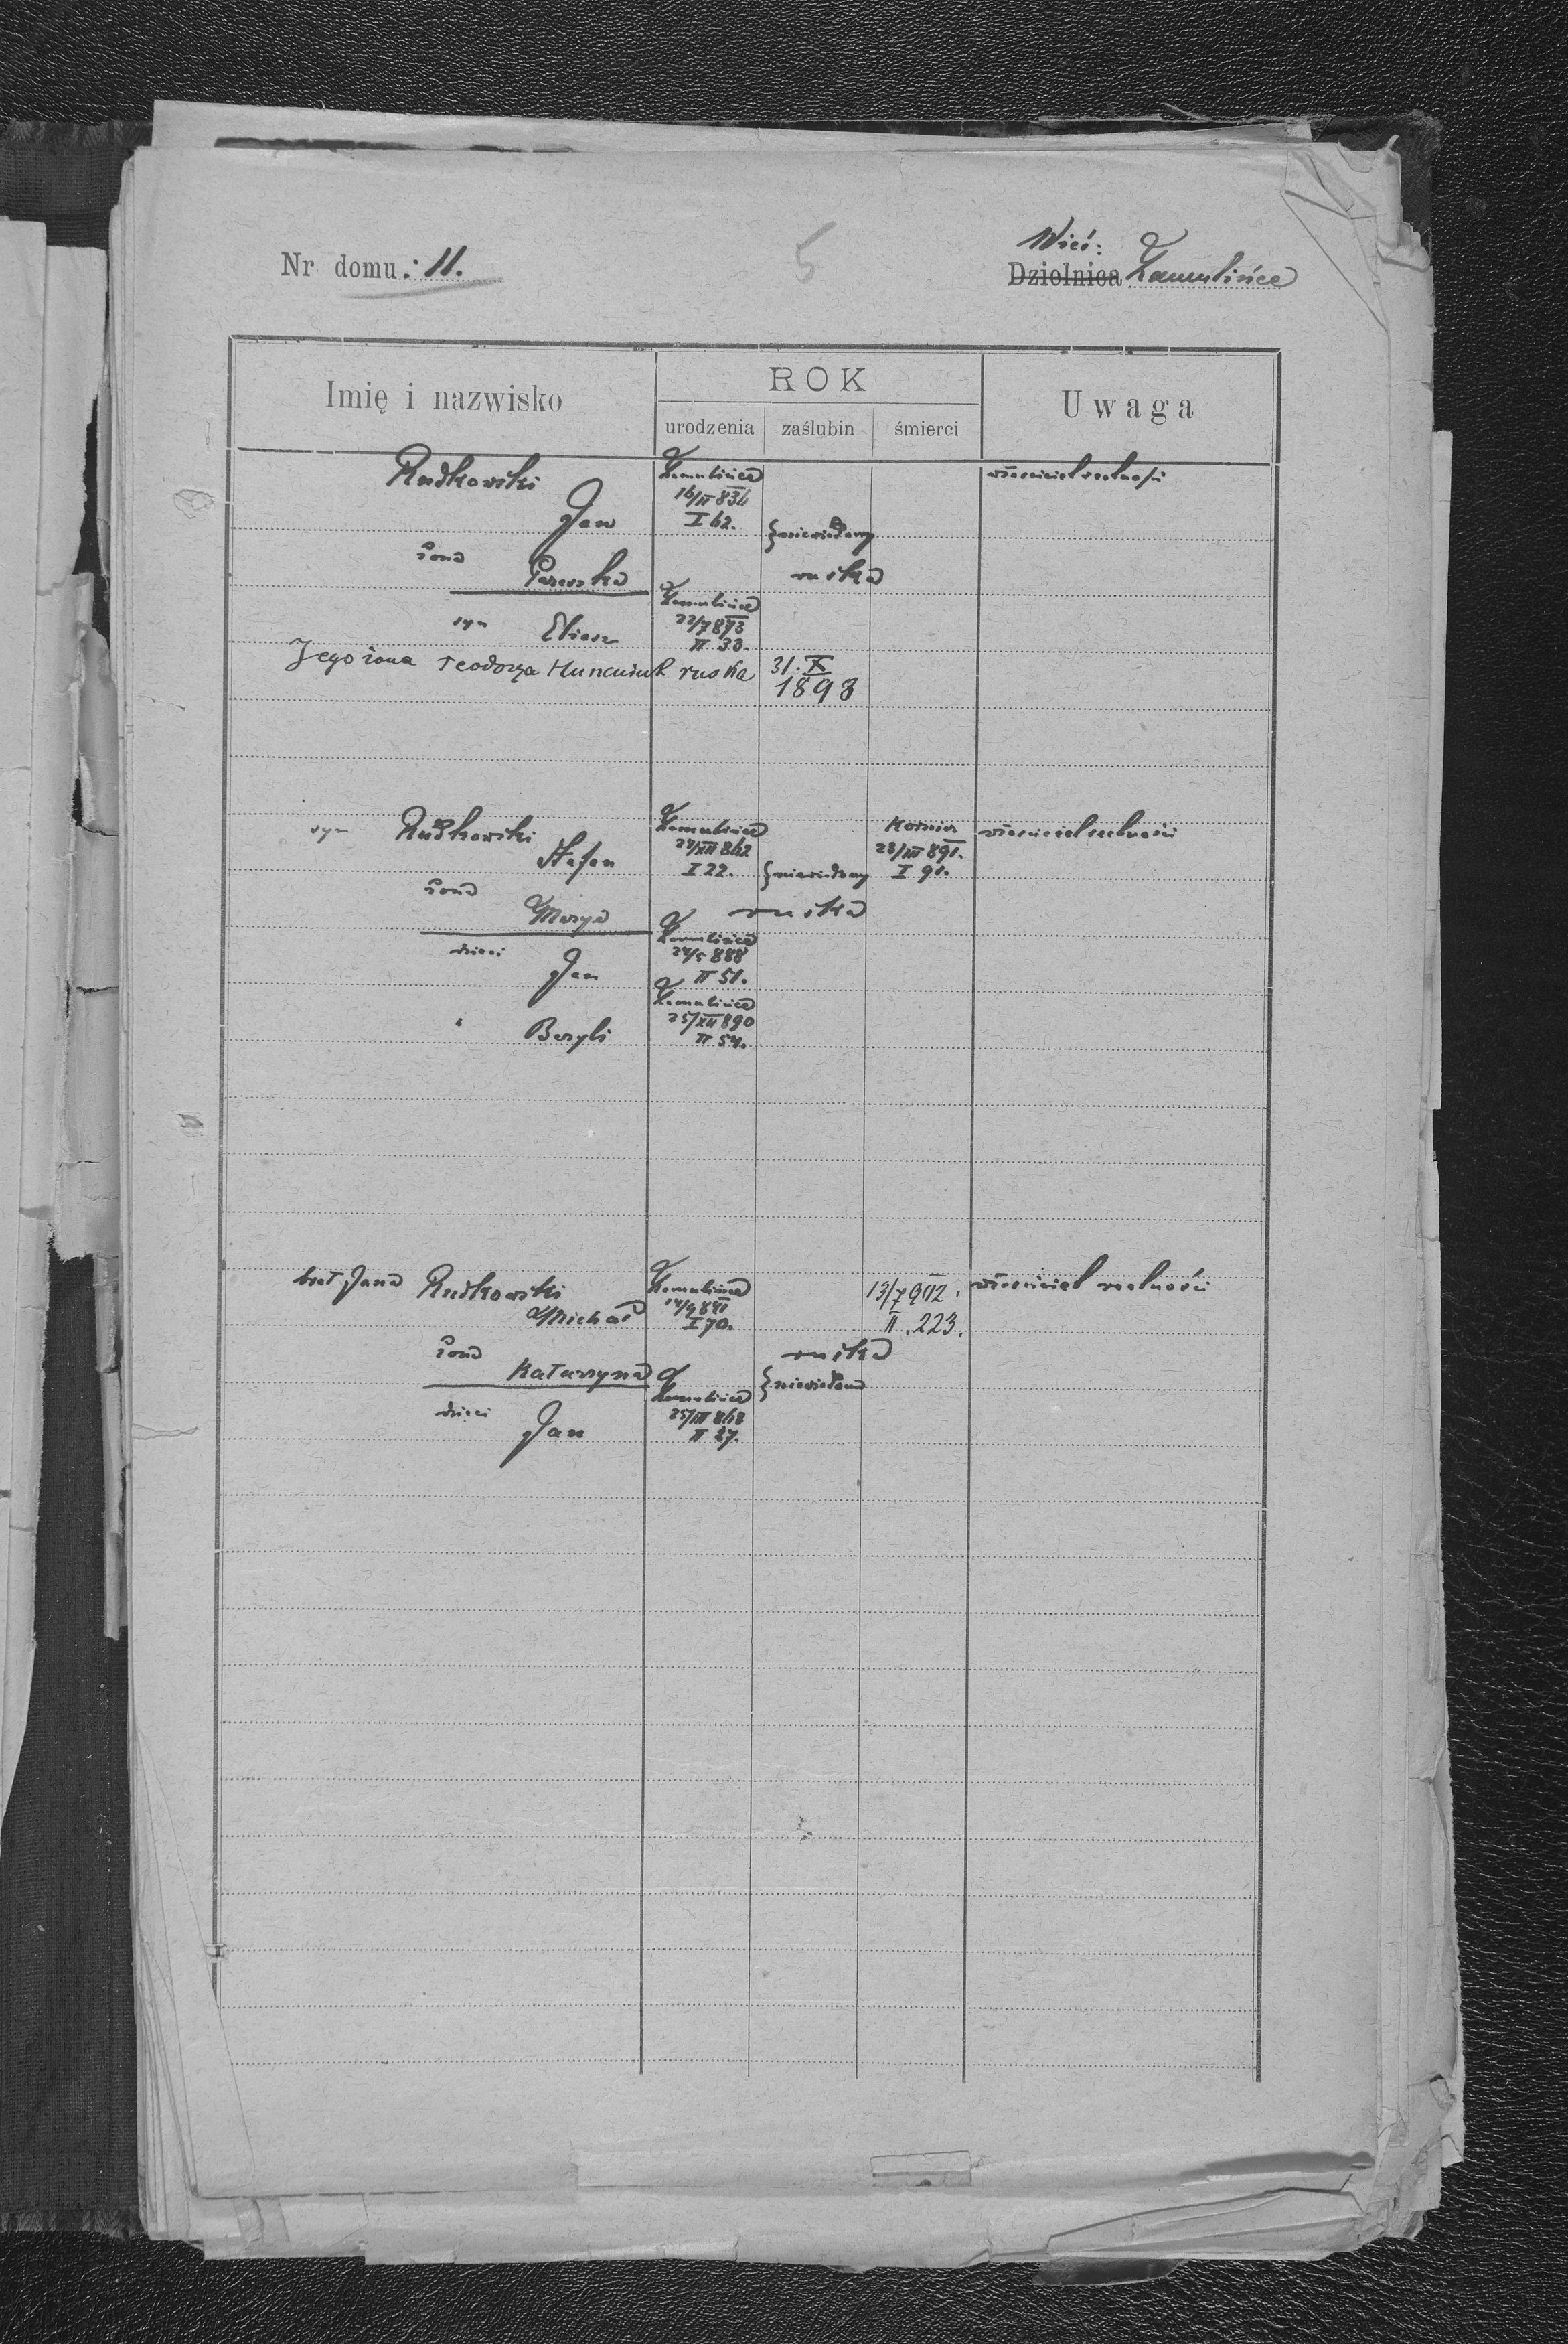 Nr domu: 11.
5
Wieś:
Dzielnica Zamulińce
Imię i nazwisko
ROK
urodzenia zaślubin śmierci
Uwaga
Rudkowski
Jan
Zamulińce
I 62.
niewiadomy
właściciel realności
żona Paraska
ruska
syn Eliasz
Zamulińce
22/7 873
II 33.
Jego żona Teodozya Huncuiuk ruska
31. X
1898
syn Rudkowski
Stefan
Zamulińce
24/XII 862
I 22.
niewiadomy
Kornicz
28/III 891.
I 91.
właściciel realności
żona Marya
ruska
dzieci Jan
Zamulińce
24/5 888
II 51.
" Bazyli
Zamulińce
25/XII 890
II 54.
brat Jana Rudkowski
Michał
Zamulińce
I 70.
13/7 902.
II. 223.
właściciel realności
żona Katarzyna
ruska
niewiadoma
dzieci Jan
Zamulińce
25/III 868
II 27.